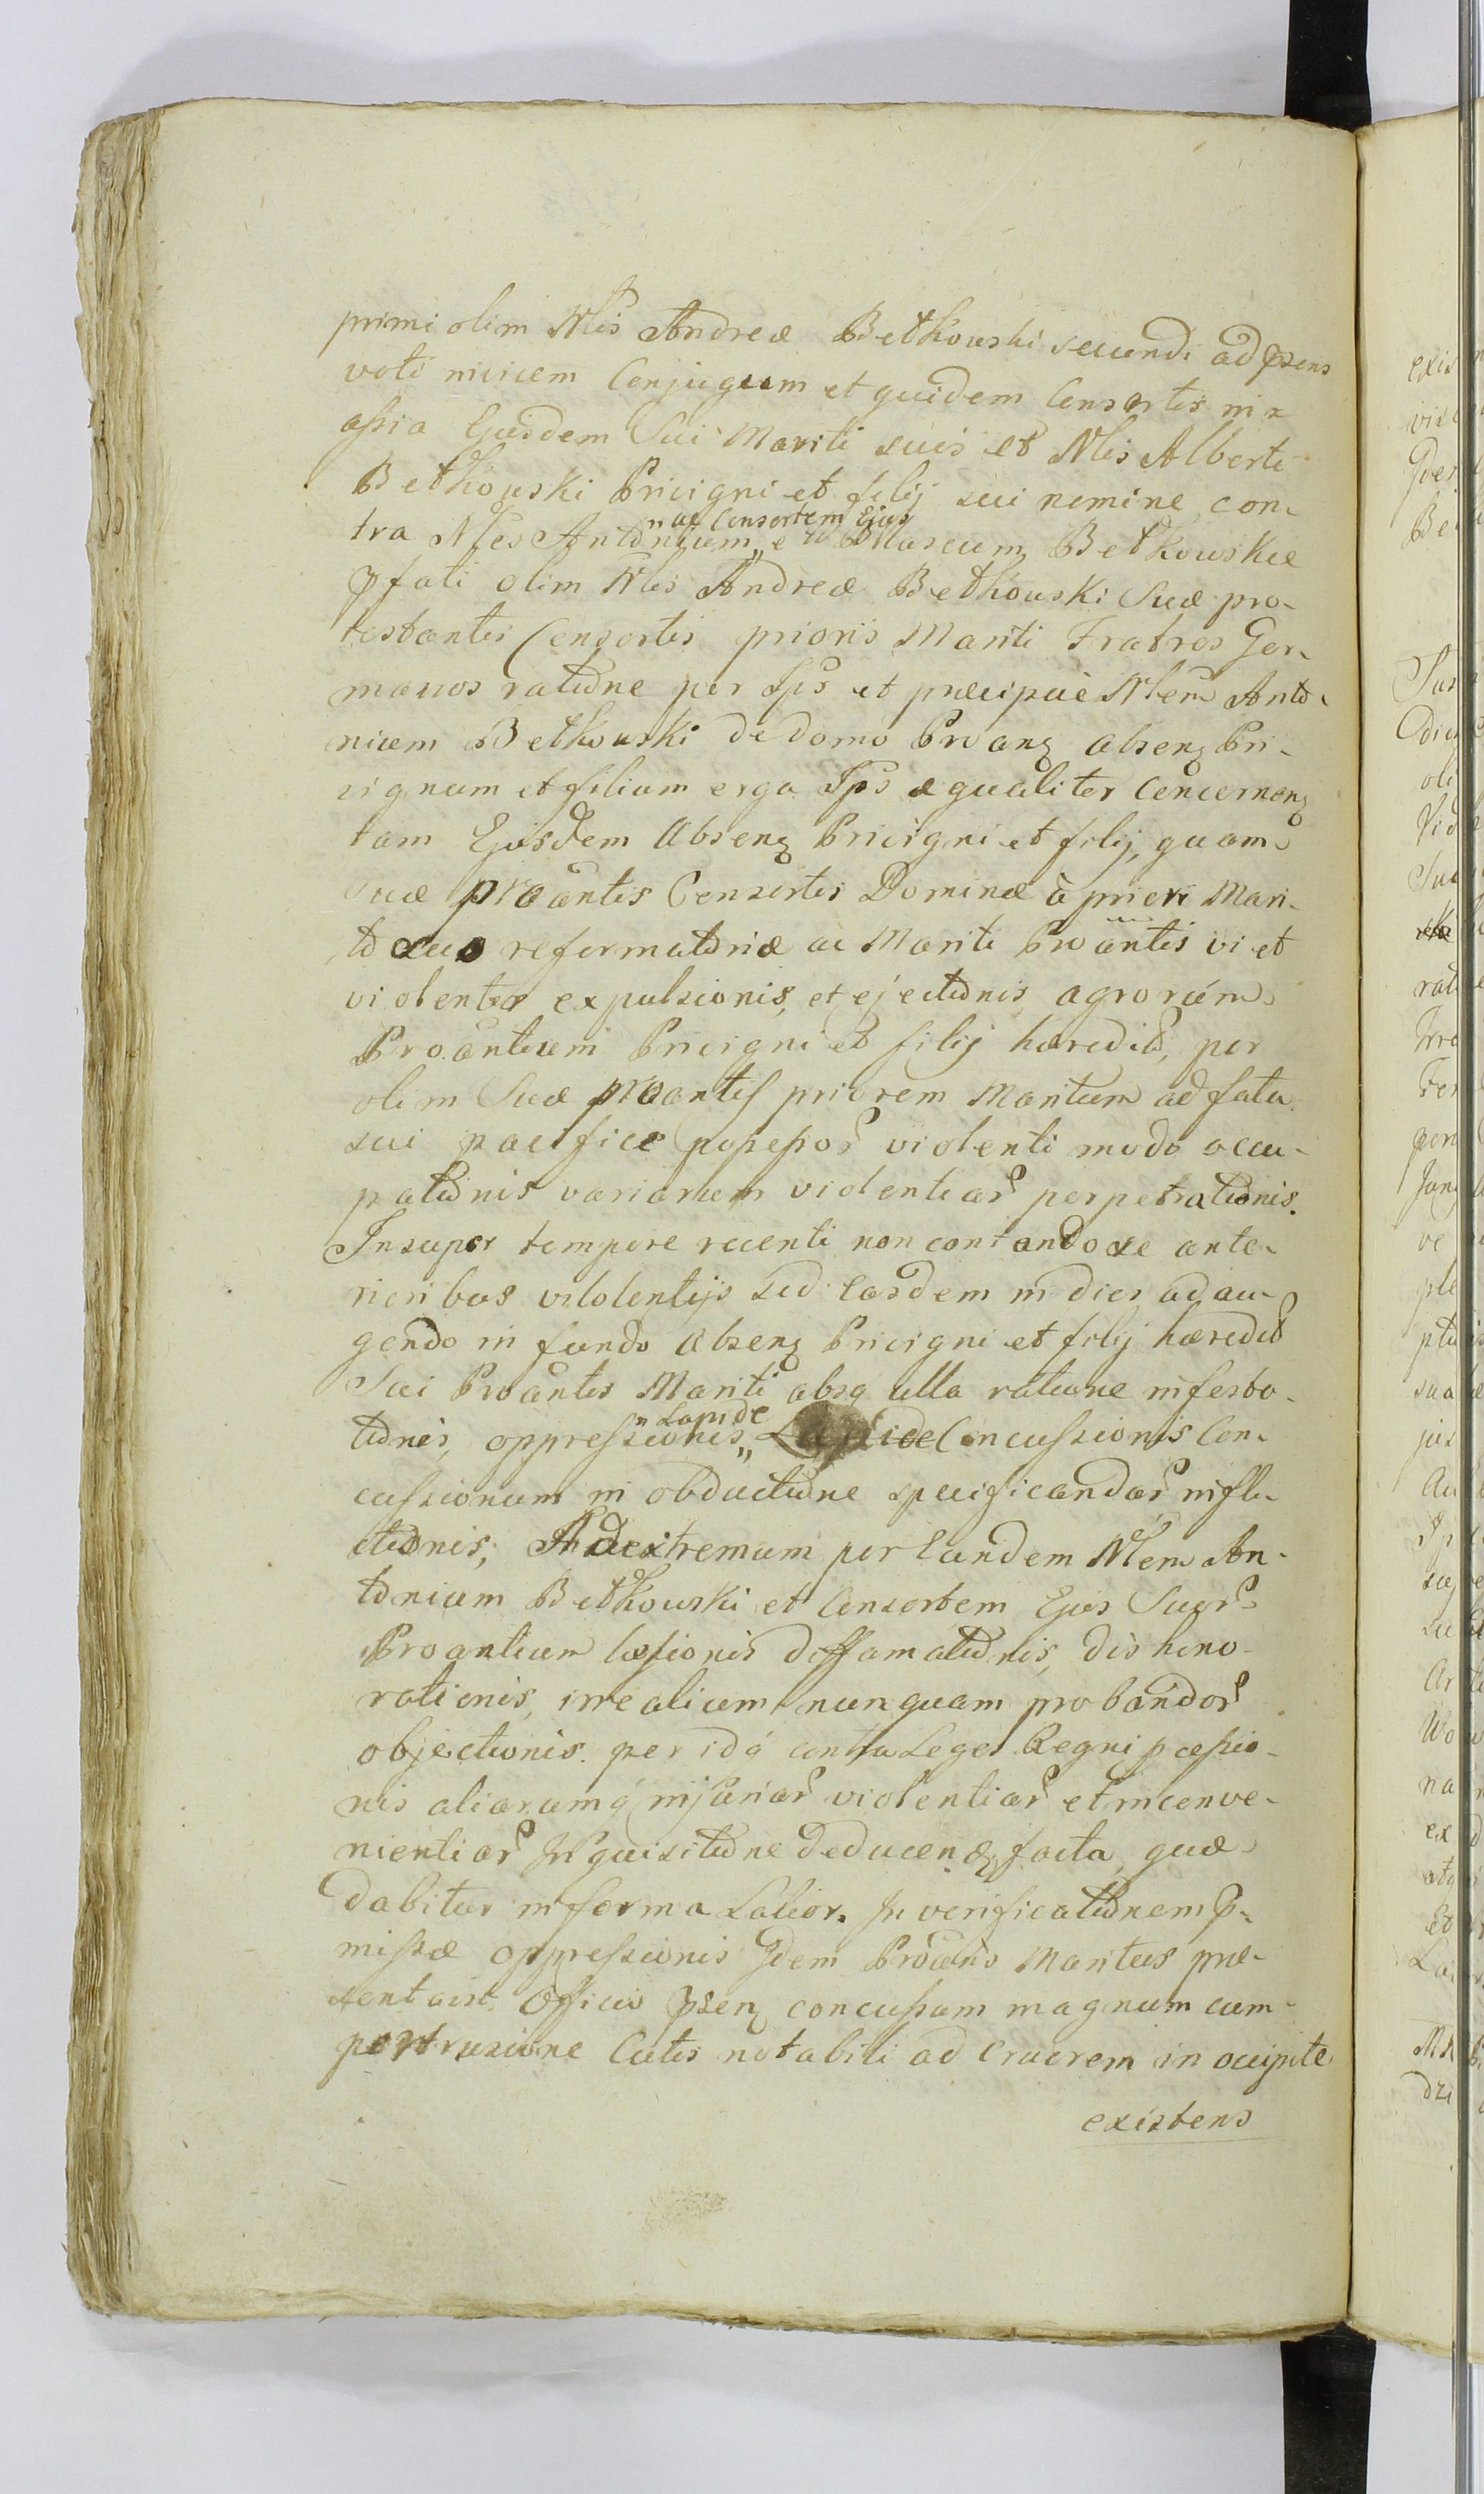 primi olim Nlis Andreæ Bethowski secundi ad psens
voti invicem Conjugum et quidem Consortis in
assia Ejusdem Sui Mariti suis et Nlis Alberti
Bethowski Privigni et filij sui nomine con-
tra Nles Antonium „ et Marcum Bethowskie
„ac Consortem Ejus
pfati olim Nlis Andreæ Bethowski Suæ pro-
testantis Consortis prioris Mariti Fratres Ger-
manos ratione per Ips et præcipuè Nlem Anto-
nium Bethowski de domo Proanz absenz Pri-
vignum et filium erga Ips æqualiter concernenz
tam Ejusdem Absenz Privigni et filij, quam
suæ proantis Consortis Dominæ à priori Mari-
to suo reformatoriæ ac Mariti Proantis vi et
violenter expulsionis, et ejectionis, agrorum
Proantium Privigni et filij hæredit, per
olim Suæ proantis priorem Maritum ad fata
sui pacifice possessor violenti modo occu-
pationis variarum violentiar perpetrationis.
Insuper tempore recenti non contando se ante-
rioribus violentijs sed easdem in dies adau-
gendo in fundo Absenz Privigni et filij hæredit
Sui Proantis Mariti absq ulla ratione infesta-
tionis, oppressionis „ Lapide Concussionis Con-
„Lapide
cussionum in obductione specificandar infli-
ctionis; Ad extremum per Eundem Nlem An-
tonium Bethowski et Consortem Ejus Suor
Proantium læsionis deffamationis, dishono-
rationis, irrealium nunquam probandor
objectionis. per idq contra Leges Regni pcessio-
nis aliarumq injuriar violentiar et inconve-
nientiar Inquisitione deducenz facta, quæ
dabitur in forma Latior. In verificationem p-
missæ oppressionis Idem Proans Maritus præ-
sentavit Officio psenz concussam magnum cum
pertrusione Cutis notabili ad Cruorem in occipite
existens